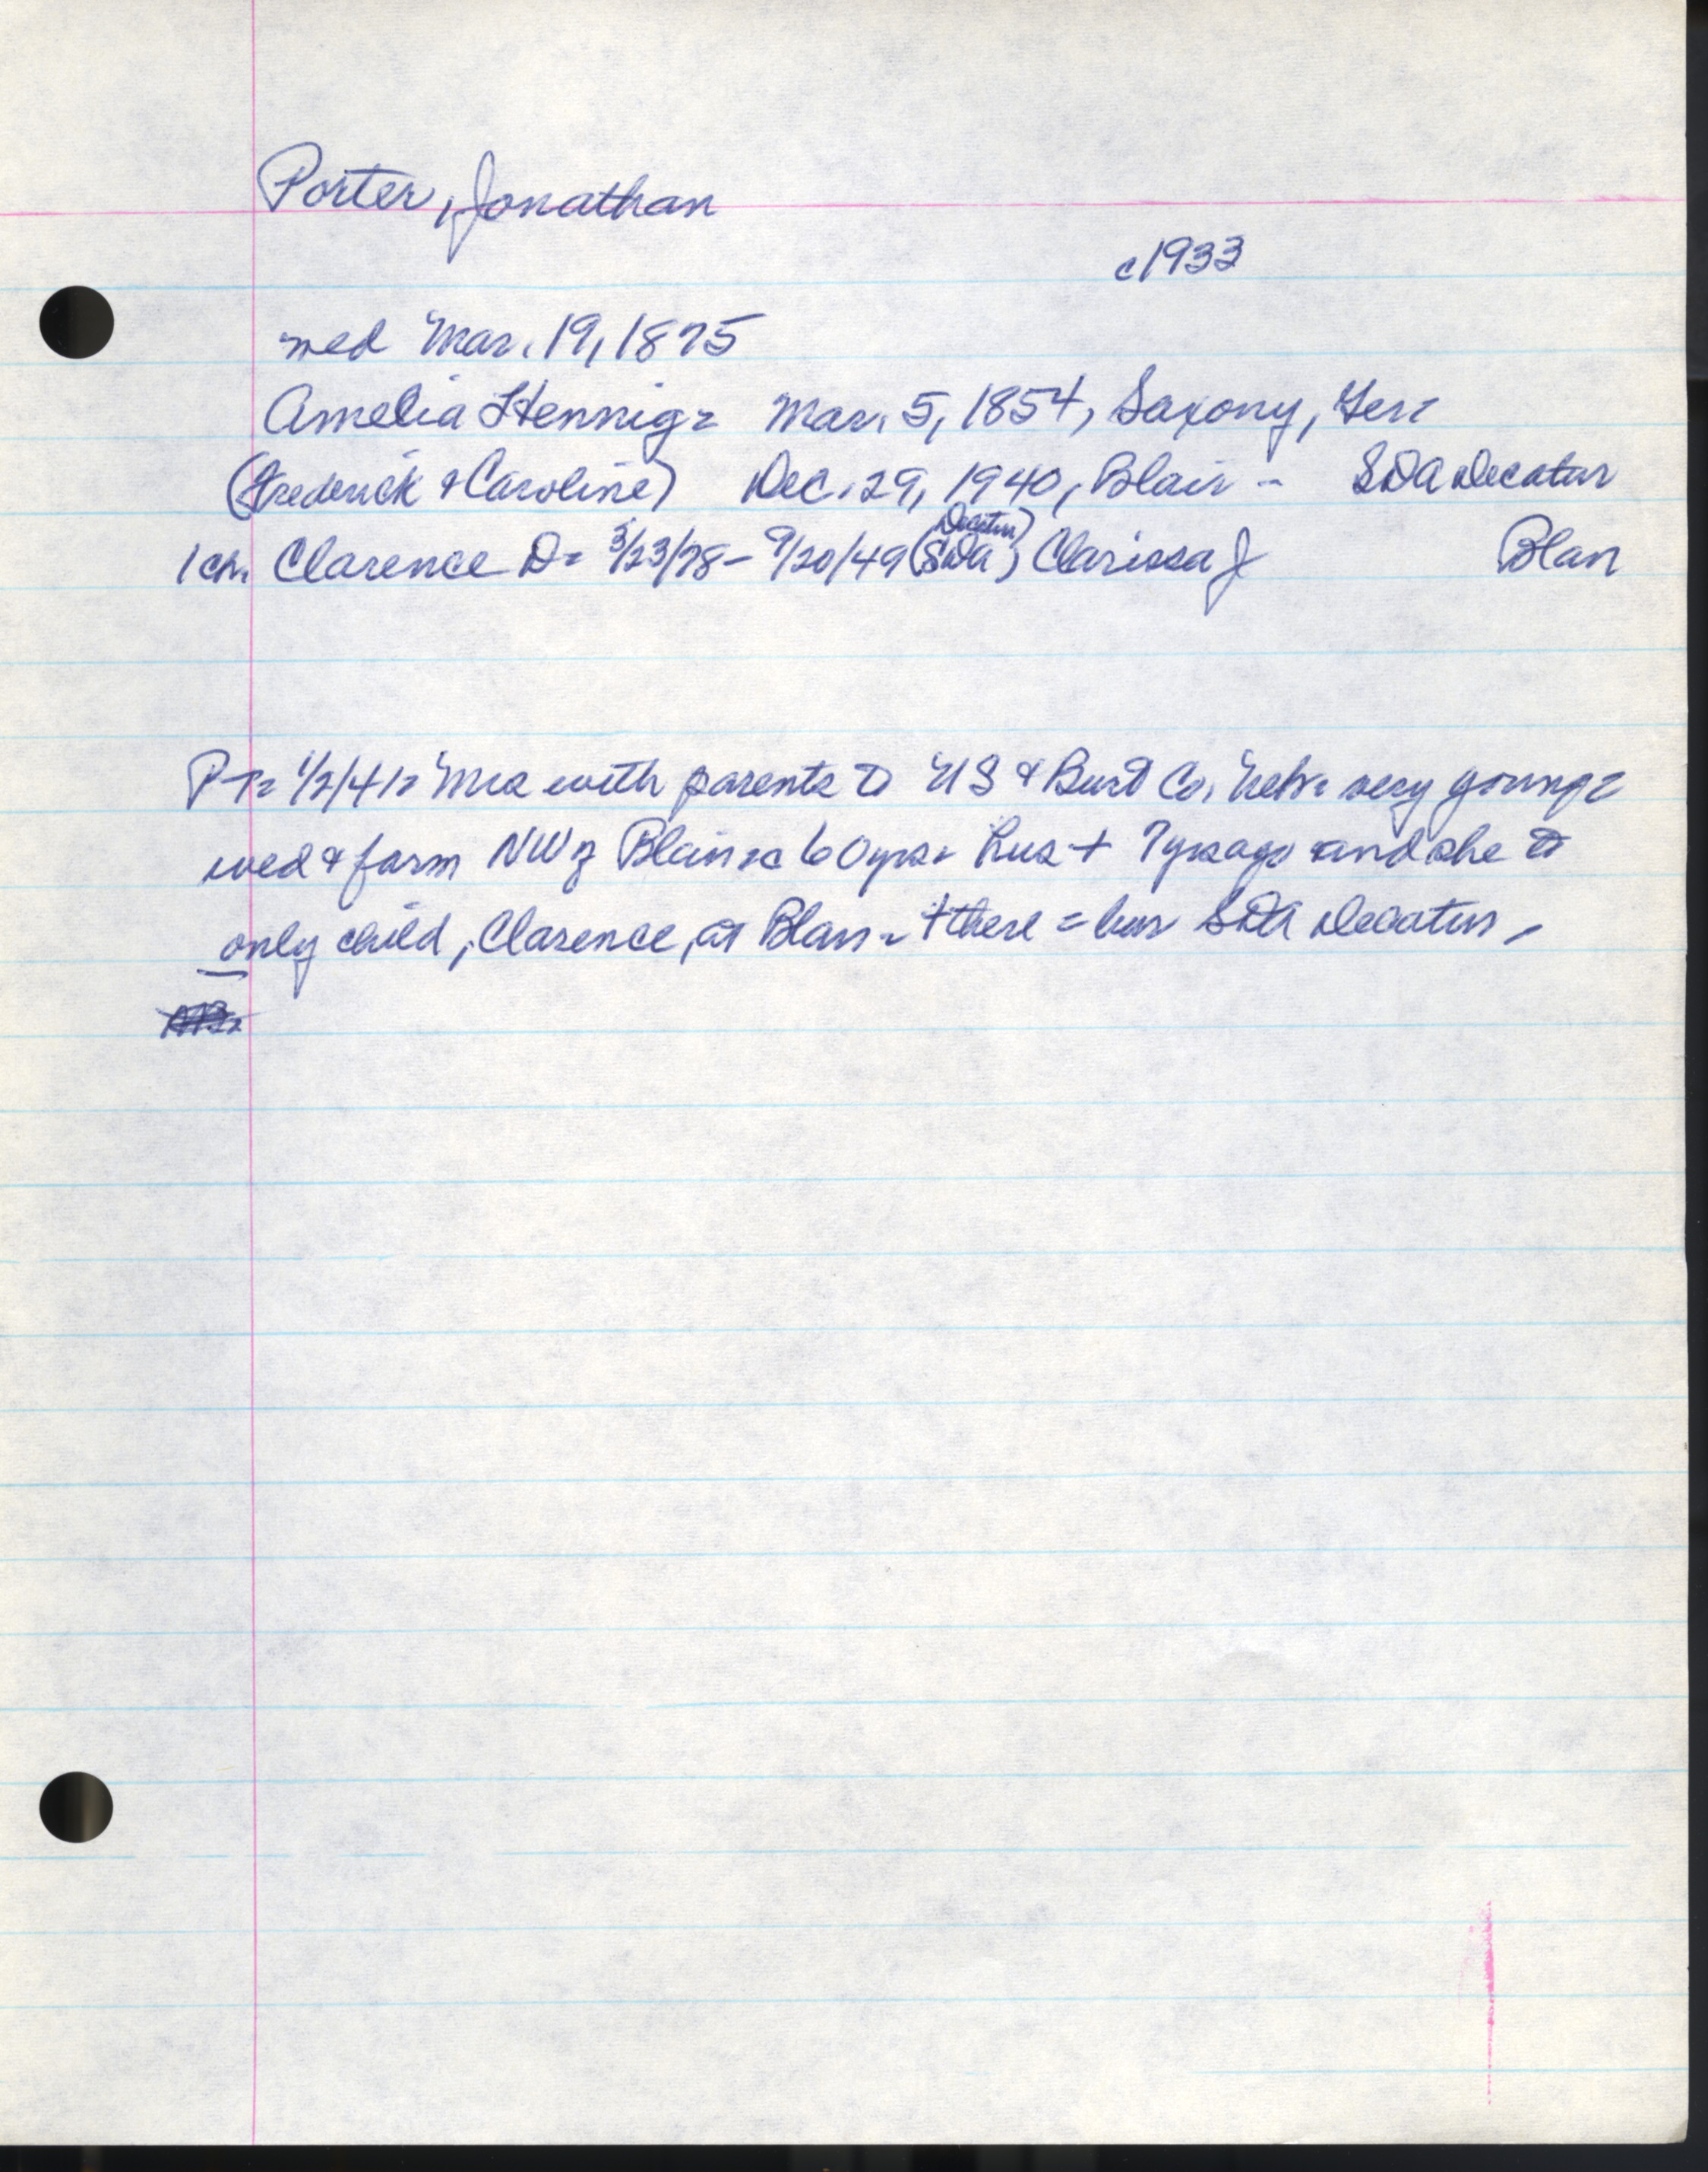 Porter, Jonathan
c1933
wed Mar. 19, 1875
Amelia Hennig = Mar. 5, 1854, Saxony, Ger =
(Frederick & Caroline) Dec. 29, 1940, Blair - SDA Decatur
1 ch. Clarence D = 3/23/78 - 9/20/49 (SDA Decatur) Clarissa J Blair
P-T = 1/2/41 = Mrs with parents to US & Burt Co. Nebr = very young =
wed & farm NW of Blair = c 60 yrs = hus + 7 yrs ago and she to
only child, Clarence, at Blair = + there = bur SDA Decatur -